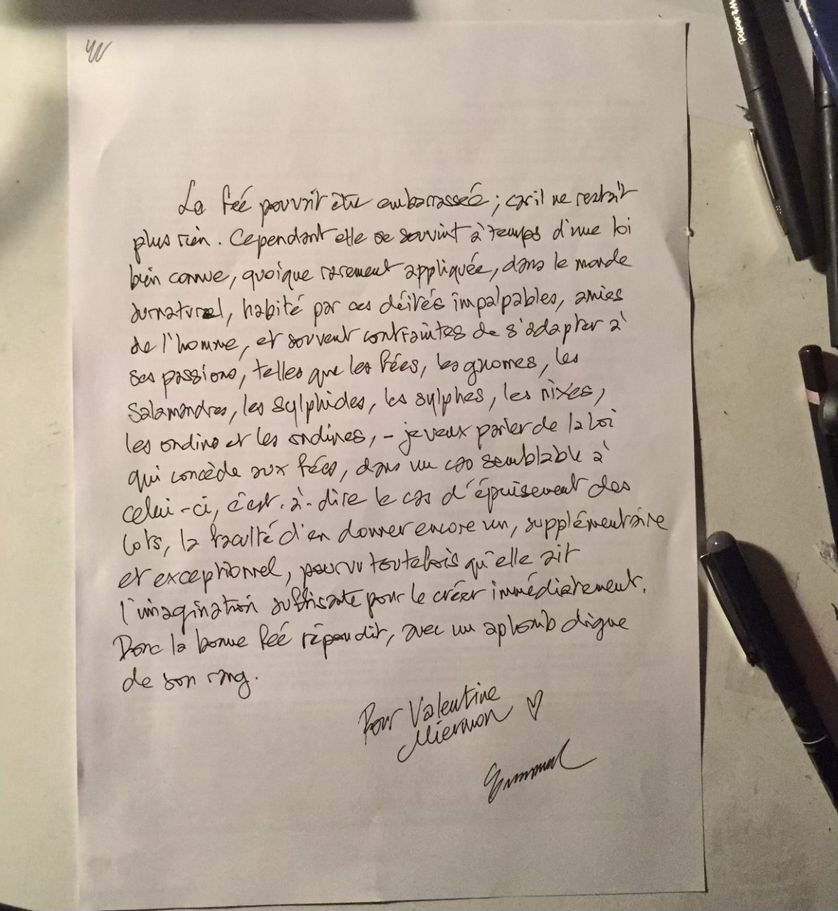 La fée pouvait être embarrassée ; car il ne restait
plus rien. Cependant elle se souvint à temps d'une loi
bien connue, quoique rarement appliquée, dans le monde
surnaturel, habité par ces déités impalpables, amies
de l'homme, et souvent contraintes de s'adapter à
ses passions, telles que les fées, les gnomes, les
salamandres, les sylphides, les sylphes, les nixes,
les ondins et les ondines, – je veux parler de la loi
qui concède aux fées, dans un cas semblable à
celui-ci, c'est-à-dire le cas d'épuisement des
lots, la faculté d'en donner encore un, supplémentaire
et exceptionnel, pourvu toutefois qu'elle ait
l'imagination suffisante pour le créer immédiatement.
Donc la bonne fée répondit, avec un aplomb digne
de son rang.
Pour Valentine